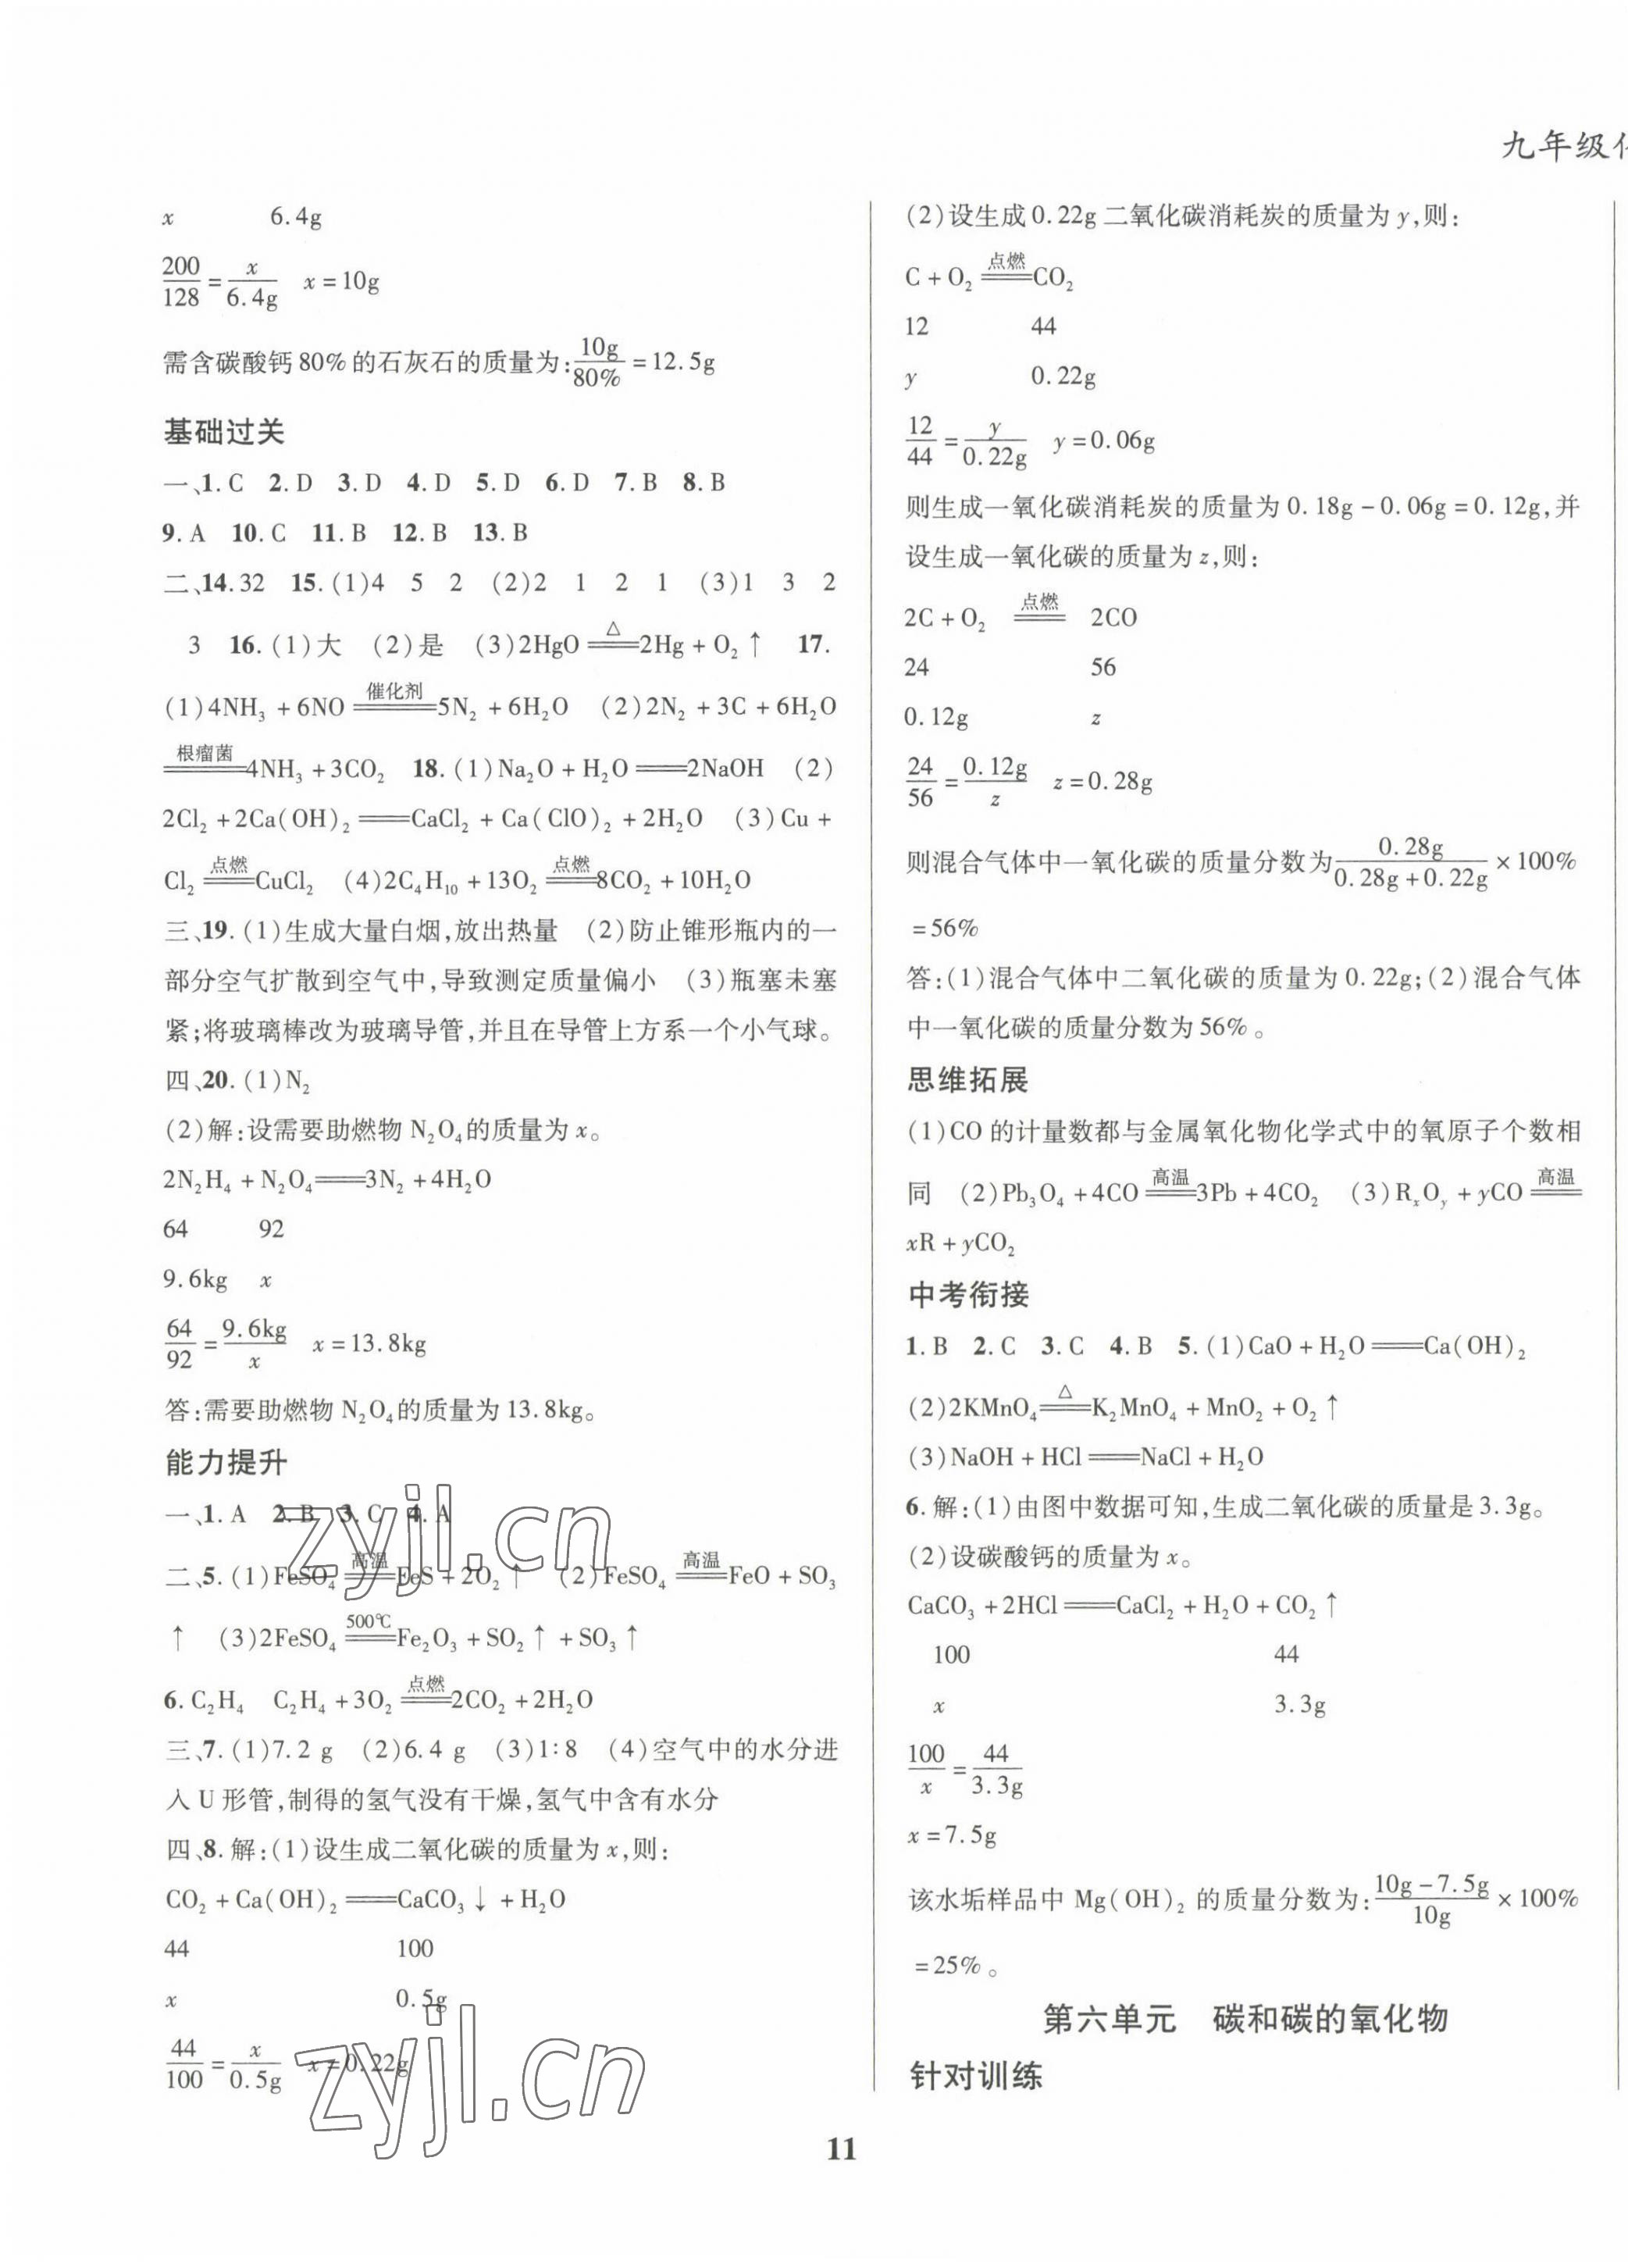 九年级
x 6.4g
200/128 = x/6.4g x=10g
需含碳酸钙80%的石灰石的质量为:10g/80% =12.5g
基础过关
一、1. C 2. D 3. D 4. D 5. D 6. D 7. B 8. B
9. A 10. C 11. B 12. B 13. B
二、14. 32 15. (1)4 5 2 (2)2 1 2 1 (3)1 3 2
3 16. (1)大 (2)是 (3)2HgO =△= 2Hg + O₂↑ 17.
(1)4NH₃ + 6NO =催化剂= 5N₂ + 6H₂O (2)2N₂ + 3C + 6H₂O
=根瘤菌= 4NH₃ + 3CO₂ 18. (1)Na₂O + H₂O══2NaOH (2)
2Cl₂ + 2Ca(OH)₂══CaCl₂ + Ca(ClO)₂ + 2H₂O (3)Cu +
Cl₂ =点燃= CuCl₂ (4)2C₄H₁₀ + 13O₂ =点燃= 8CO₂ + 10H₂O
三、19. (1)生成大量白烟,放出热量 (2)防止锥形瓶内的一
部分空气扩散到空气中,导致测定质量偏小 (3)瓶塞未塞
紧;将玻璃棒改为玻璃导管,并且在导管上方系一个小气球。
四、20. (1)N₂
(2)解:设需要助燃物N₂O₄的质量为x。
2N₂H₄ + N₂O₄══3N₂ + 4H₂O
64 92
9.6kg x
64/92 = 9.6kg/x x=13.8kg
答:需要助燃物N₂O₄的质量为13.8kg。
能力提升
一、1. A 2. B 3. C 4. A
二、5. (1)FeSO₄ =高温= FeS + 2O₂↑ (2)FeSO₄ =高温= FeO + SO₃
↑ (3)2FeSO₄ =500℃= Fe₂O₃ + SO₂↑ + SO₃↑
6. C₂H₄ C₂H₄ + 3O₂ =点燃= 2CO₂ + 2H₂O
三、7. (1)7.2 g (2)6.4 g (3)1:8 (4)空气中的水分进
入U形管,制得的氢气没有干燥,氢气中含有水分
四、8. 解:(1)设生成二氧化碳的质量为x,则:
CO₂ + Ca(OH)₂══CaCO₃↓ + H₂O
44 100
x 0.5g
44/100 = x/0.5g x=0.22g
(2)设生成0.22g二氧化碳消耗炭的质量为y,则:
C + O₂ =点燃= CO₂
12 44
y 0.22g
12/44 = y/0.22g y=0.06g
则生成一氧化碳消耗炭的质量为0.18g-0.06g=0.12g,并
设生成一氧化碳的质量为z,则:
2C + O₂ =点燃= 2CO
24 56
0.12g z
24/56 = 0.12g/z z=0.28g
则混合气体中一氧化碳的质量分数为0.28g/(0.28g+0.22g) ×100%
=56%
答:(1)混合气体中二氧化碳的质量为0.22g;(2)混合气体
中一氧化碳的质量分数为56%。
思维拓展
(1)CO的计量数都与金属氧化物化学式中的氧原子个数相
同 (2)Pb₃O₄ + 4CO =高温= 3Pb + 4CO₂ (3)RₓOᵧ + yCO =高温=
xR + yCO₂
中考衔接
1. B 2. C 3. C 4. B 5. (1)CaO + H₂O══Ca(OH)₂
(2)2KMnO₄ =△= K₂MnO₄ + MnO₂ + O₂↑
(3)NaOH + HCl══NaCl + H₂O
6. 解:(1)由图中数据可知,生成二氧化碳的质量是3.3g。
(2)设碳酸钙的质量为x。
CaCO₃ + 2HCl══CaCl₂ + H₂O + CO₂↑
100 44
x 3.3g
100/x = 44/3.3g
x=7.5g
该水垢样品中Mg(OH)₂的质量分数为:(10g-7.5g)/10g ×100%
=25%。
第六单元 碳和碳的氧化物
针对训练
11
zyjl.cn
zyjl.cn